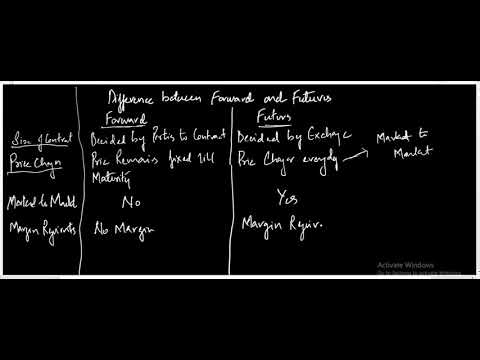 Difference between Forward and Futures
Forward Futurs
Size of Contract Decided by Parties to Contract Decided by Exchange
Price Changes Price Remains fixed till Price Changes everyday → Market to
Maturity Market
Marked to Market No Yes
Margin Requirements No Margin Margin Requir.
Activate Windows
Go to Settings to activate Windows.